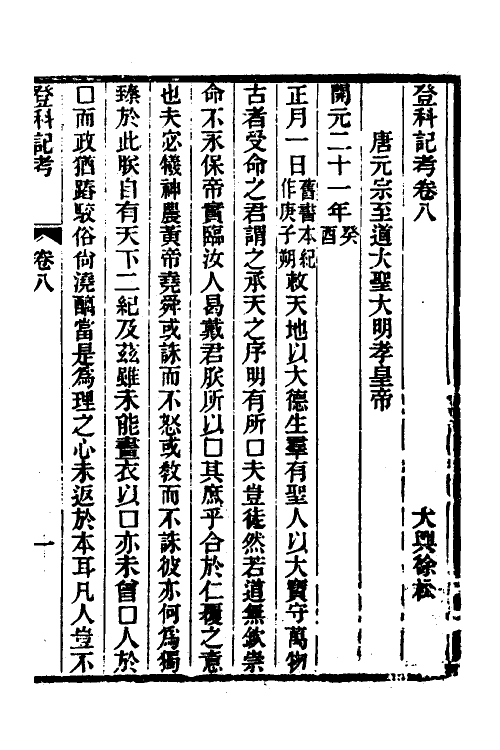 登科記考卷八
大興徐松
唐元宗至道大聖大明孝皇帝
開元二十一年癸酉
正月一日舊書本紀作庚子朔敕天地以大德生羣有聖人以大寶守萬物
古者受命之君謂之承天之序明有所□夫豈徒然若道無欽崇
命不永保帝實臨汝人曷戴君朕所以□其庶乎合於仁覆之意
也夫宓犧神農黃帝堯舜或誅而不怒或教而不誅彼亦何爲獨
臻於此朕自有天下二紀及茲雖未能畫衣以□亦未曾□人於
□而政猶踳駮俗尙澆醨當是爲理之心未返於本耳凡人豈不
登科記考
卷八
一